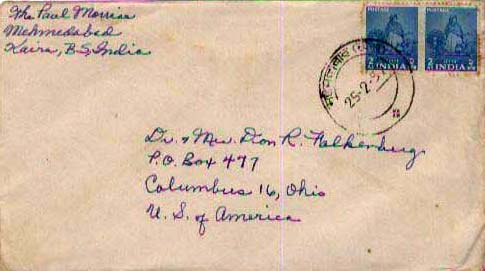 The Paul Morriss
Mehmedabad
Kaira, B.S, India
POSTAGE
POSTAGE
2 INDIA
2 INDIA
25-2-5
Dr. & Mrs. Don R. Falkenberg
P.O. Box 477
Columbus 16, Ohio
U. S. of America